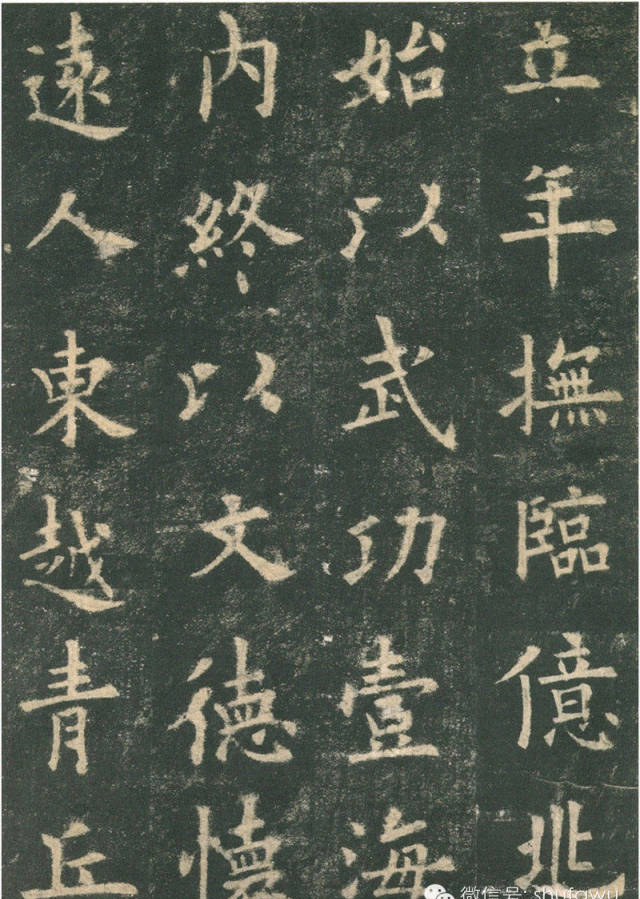 立年撫臨億兆
始以武功壹海
內終以文德懷
遠人東越青丘
微信号: shufawu